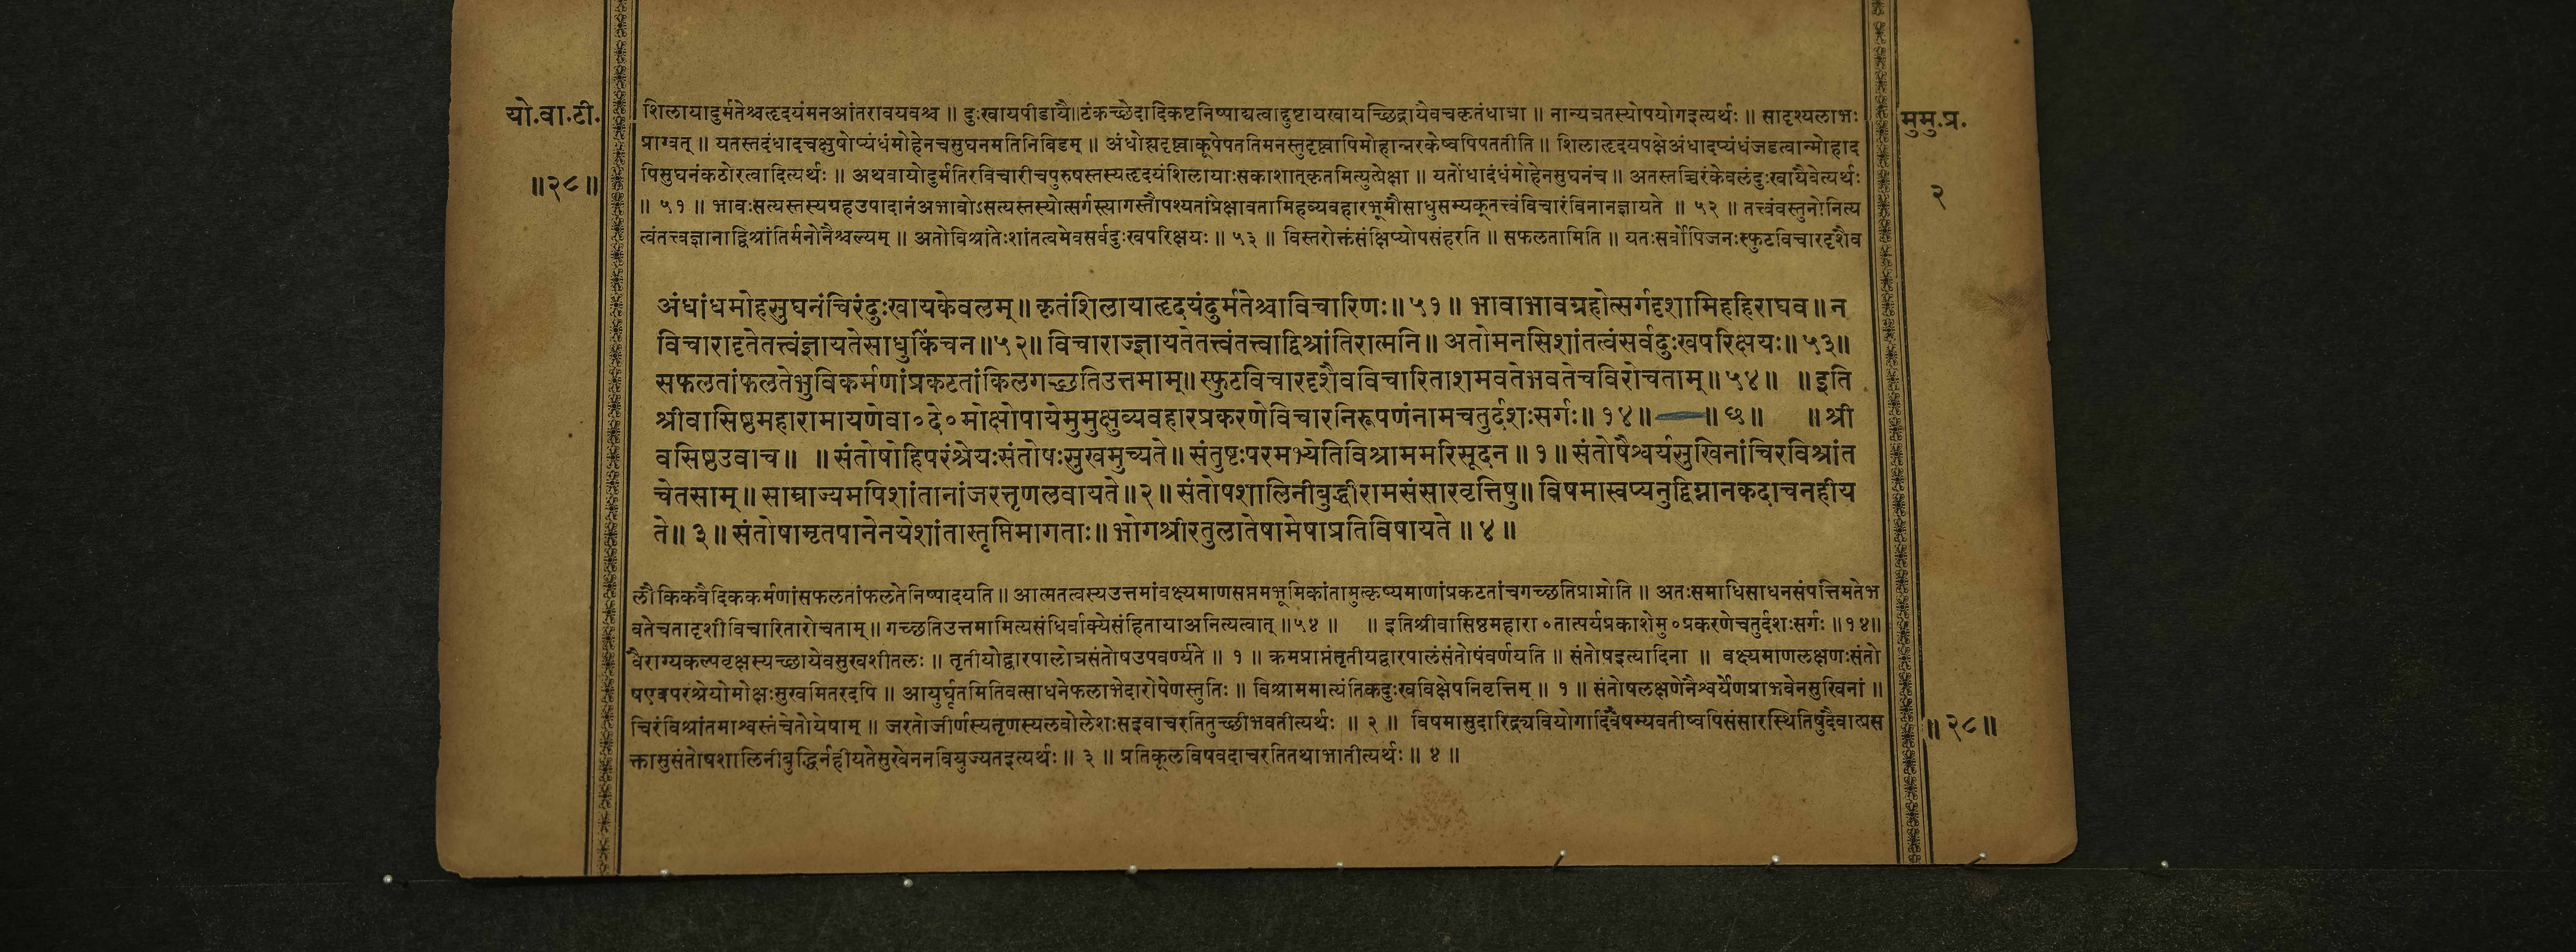 यो.वा.टी.
॥२८॥
मुमु.प्र.
२
शिलायादुर्मतेश्चहृदयंमनआंतरावयवश्च ॥ दुःखायपीडायै॥टंकच्छेदादिकष्टनिष्पाद्यत्वाद्दुष्टायखायच्छिद्रायेवचकृतंधात्रा ॥ नान्यत्रतस्योपयोगइत्यर्थः ॥ सादृश्यलाभः
प्राग्वत् ॥ यतस्तदंधादचक्षुषोप्यंधंमोहेनचसुघनमतिनिबिडम् ॥ अंधोह्यदृष्ट्वाकूपेपततिमनस्तुदृष्ट्वापिमोहान्नरकेष्वपिपततीति ॥ शिलाहृदयपक्षेअंधादप्यंधंजडत्वान्मोहाद
पिसुघनंकठोरत्वादित्यर्थः ॥ अथवायोदुर्मतिरविचारीचपुरुषस्तस्यहृदयंशिलायाःसकाशात्कृतमित्युत्प्रेक्षा ॥ यतोंधादंधंमोहेनसुघनंच ॥ अतस्तच्चिरंकेवलंदुःखायैवेत्यर्थः
॥ ५१ ॥ भावःसत्यस्तस्यग्रहउपादानंअभावोऽसत्यस्तस्योत्सर्गस्त्यागस्तौपश्यतांप्रेक्षावतामिहव्यवहारभूमौसाधुसम्यक्तत्त्वंविचारंविनानज्ञायते ॥ ५२ ॥ तत्त्वंवस्तुनोनित्य
त्वंतत्त्वज्ञानाद्विश्रांतिर्मनोनैश्चल्यम् ॥ अतोविश्रांतेःशांतत्वमेवसर्वदुःखपरिक्षयः ॥ ५३ ॥ विस्तरोक्तंसंक्षिप्योपसंहरति ॥ सफलतामिति ॥ यतःसर्वोपिजनःस्फुटविचारदृशैव
अंधांधमोहसुघनंचिरंदुःखायकेवलम् ॥ कृतंशिलायाहृदयंदुर्मतेश्चाविचारिणः॥ ५१ ॥ भावाभावग्रहोत्सर्गदृशामिहहिराघव ॥ न
विचारादृतेतत्त्वंज्ञायतेसाधुकिंचन॥५२॥ विचाराज्ज्ञायतेतत्त्वंतत्त्वाद्विश्रांतिरात्मनि॥ अतोमनसिशांतत्वंसर्वदुःखपरिक्षयः॥ ५३॥
सफलतांफलतेभुविकर्मणांप्रकटतांकिलगच्छतिउत्तमाम्॥ स्फुटविचारदृशैवविचारिताशमवतेभवतेचविरोचताम्॥ ५४॥ ॥इति
श्रीवासिष्ठमहारामायणेवा०दे०मोक्षोपायेमुमुक्षुव्यवहारप्रकरणेविचारनिरूपणंनामचतुर्दशःसर्गः॥ १४॥ ॥ छ॥ ॥श्री
वसिष्ठउवाच॥ ॥ संतोषोहिपरंश्रेयःसंतोषःसुखमुच्यते॥ संतुष्टःपरमभ्येतिविश्राममरिसूदन ॥ १॥ संतोषैश्वर्यसुखिनांचिरविश्रांत
चेतसाम्॥ साम्राज्यमपिशांतानांजरत्तृणलवायते॥२॥ संतोषशालिनीबुद्धीरामसंसारवृत्तिषु॥ विषमास्वप्यनुद्विग्नानकदाचनहीय
ते॥ ३॥ संतोषामृतपानेनयेशांतास्तृप्तिमागताः॥ भोगश्रीरतुलातेषामेषाप्रतिविषायते ॥ ४॥
लौकिकवैदिककर्मणांसफलतांफलतेनिष्पादयति॥ आत्मतत्वस्यउत्तमांवक्ष्यमाणसप्तमभूमिकांतामुत्कृष्यमाणांप्रकटतांचगच्छतिप्राप्नोति ॥ अतःसमाधिसाधनसंपत्तिमतेभ
वतेचतादृशीविचारितारोचताम्॥ गच्छतिउत्तमामित्यसंधिर्वाक्येसंहितायाअनित्यत्वात् ॥५४ ॥ ॥ इतिश्रीवासिष्ठमहारा०तात्पर्यप्रकाशेमु०प्रकरणेचतुर्दशःसर्गः ॥१४॥
वैराग्यकल्पवृक्षस्यच्छायेवसुखशीतलः ॥ तृतीयोद्वारपालोत्रसंतोषउपवर्ण्यते ॥ १ ॥ क्रमप्राप्तंतृतीयद्वारपालंसंतोषंवर्णयति ॥ संतोषइत्यादिना ॥ वक्ष्यमाणलक्षणःसंतो
षएवपरंश्रेयोमोक्षःसुखमितरदपि ॥ आयुर्घृतमितिवत्साधनेफलाभेदारोपेणस्तुतिः ॥ विश्राममात्यंतिकदुःखविक्षेपनिवृत्तिम् ॥ १ ॥ संतोषलक्षणेनैश्वर्येणप्राभवेनसुखिनां ॥
चिरंविश्रांतमाश्वस्तंचेतोयेषाम् ॥ जरतोजीर्णस्यतृणस्यलवोलेशःसइवाचरतितुच्छीभवतीत्यर्थः ॥ २ ॥ विषमासुदारिद्र्यवियोगादिवैषम्यवतीष्वपिसंसारस्थितिषुदैवात्प्रस
क्तासुसंतोषशालिनीबुद्धिर्नहीयतेसुखेननवियुज्यतइत्यर्थः॥ ३ ॥ प्रतिकूलविषवदाचरतितथाभातीत्यर्थः॥ ४ ॥
॥२८॥